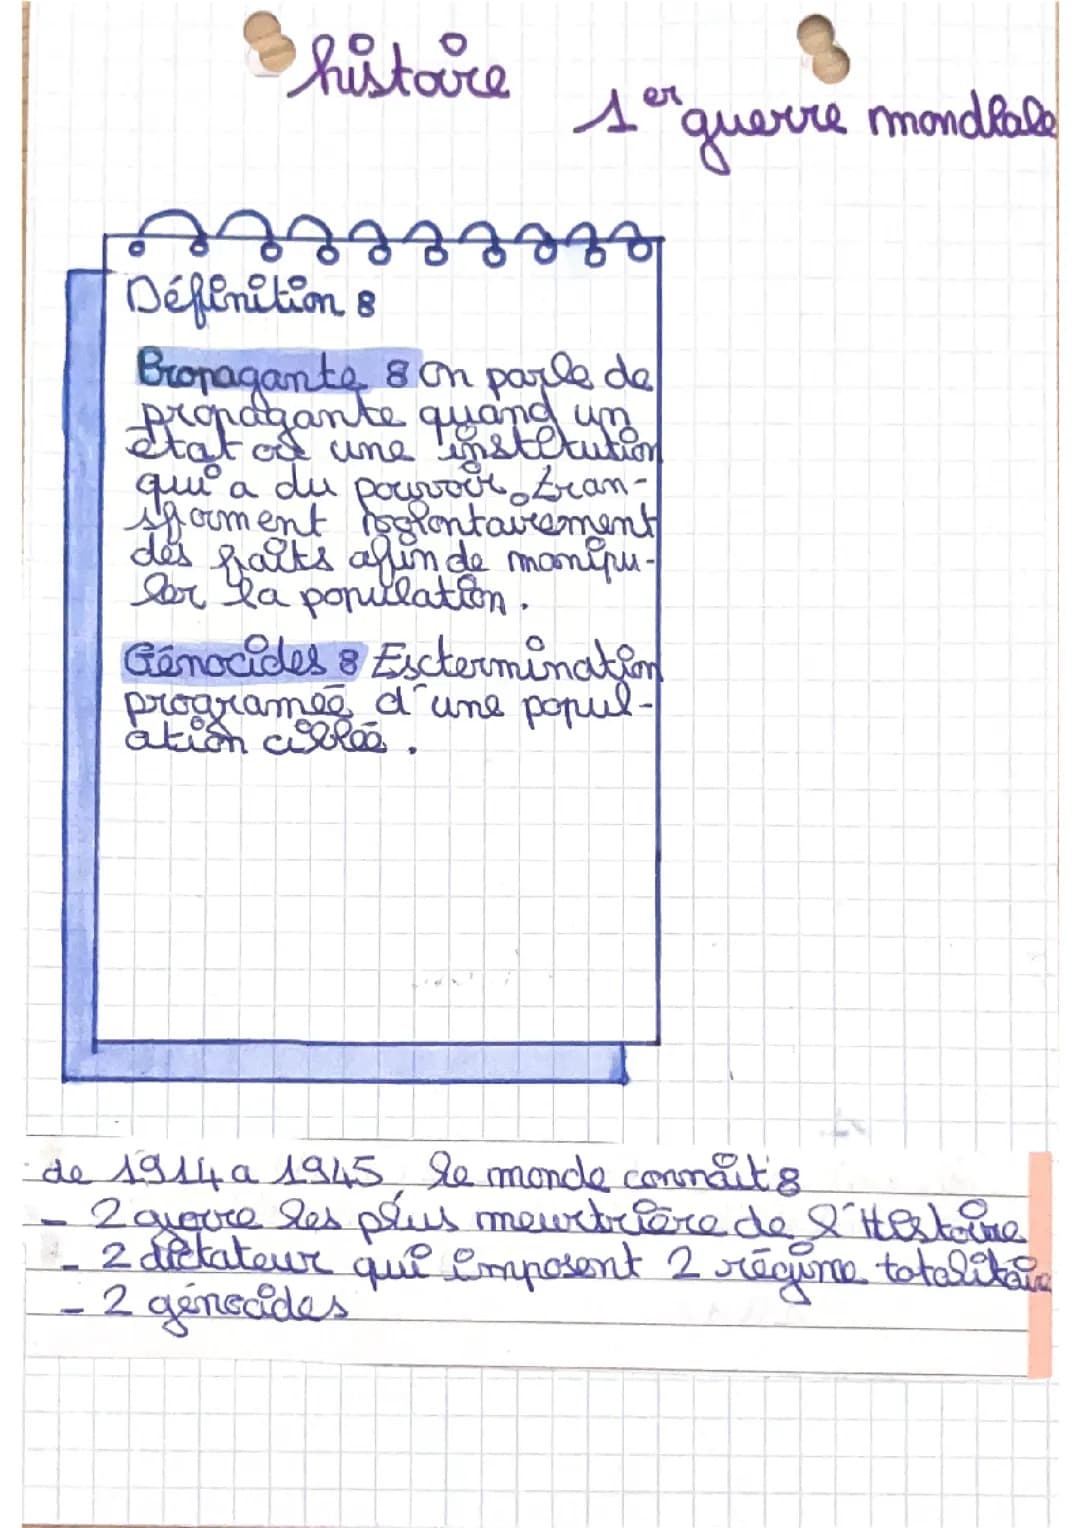 histoire
1er guerre mondiale
Définition :
Propagante : On parle de
propagante quand un
état ou une institution
qui a du pouvoir, tran-
sforment volontairement
des faits afin de manipu-
ler la population.
Génocides : Esctermination
programeé d'une popul-
ation cibleé.
de 1914 a 1945 le monde connaît :
- 2 guerre les plus meurtrière de l'Histoire
- 2 dictateur qui imposent 2 régime totalitaire
- 2 génocides